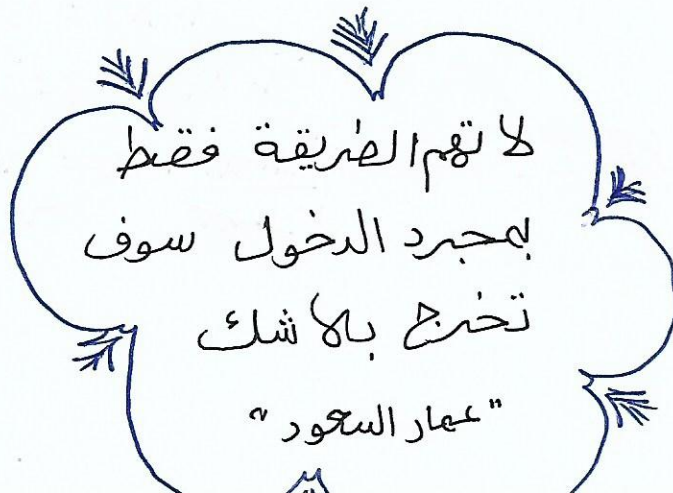 لا تهم الطريقة فقط
بمجرد الدخول سوف
تخرج بلا شك
"عمار السعود"